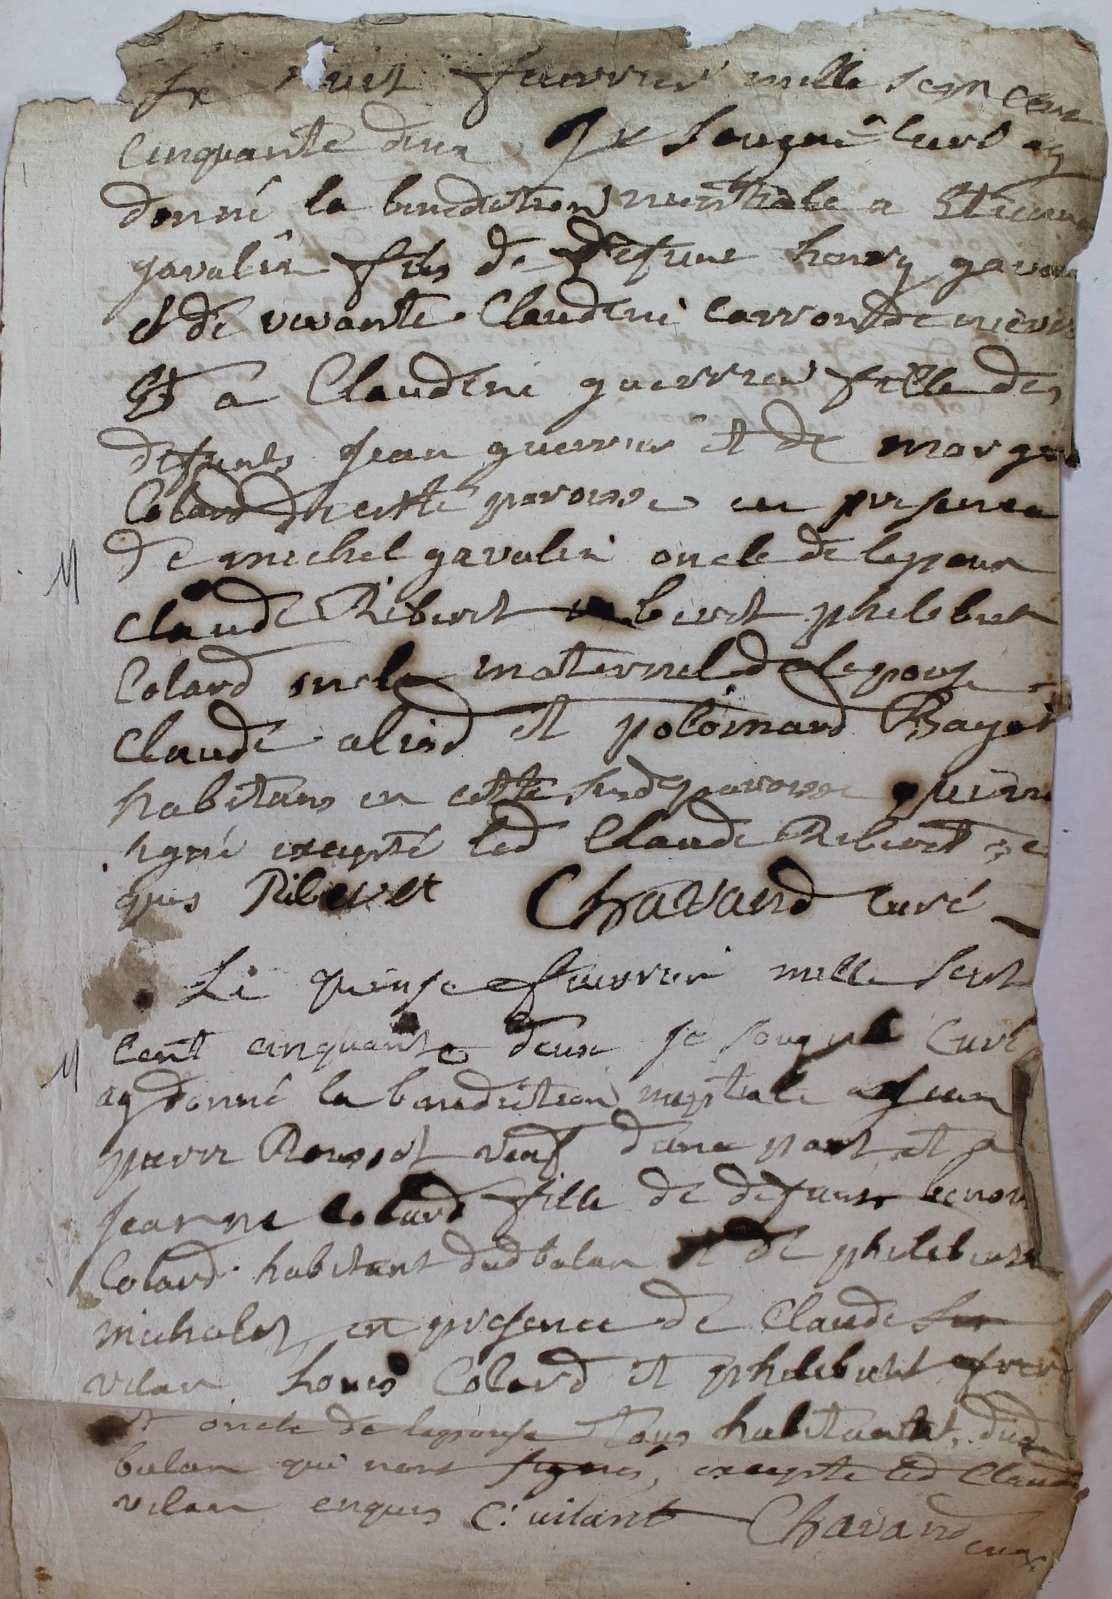 Le huit feuvrier mille sept cent
cinquante deux Je sougné curé ay
donné la benediction nuptiale a Etienne
gavalin fils de defunt honry
et de vivante Claudine Carron de
Et a Claudine guerrier fille des
defunts Jean guerrier et de
Colard de cette paroisse en presence
de michel gavalin oncle de lepoux
Claude Ribert phelebert
Colard oncle maternel de lepouse
Claude et
habitans en cette susd paroisse qui
signé excepté led Claude Ribert
quis Ribert Chavand curé
M
Le quinse feuvrier mille sept
cent cinquante deux je sougné curé
ay donné la benediction nuptiale a Jean
pierre Rousset veuf dune part et a
Jeanne Colard fille de defunt benoi
Colard habitant dud balan et de pheleberte
michalet en presence de Claude
vilan Colard et phelebert
et oncle de lepouse tous habitants dud
balan qui nont signés, excepte led Claude
vilan enquis C: vilant Chavand curé
M